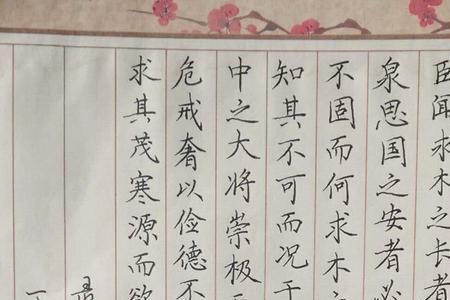 臣闻求木之长者
泉思国之安者必
不固而何求木之
知其不可而况于
中之大将崇极
危戒奢以俭德不
求其茂塞源而欲